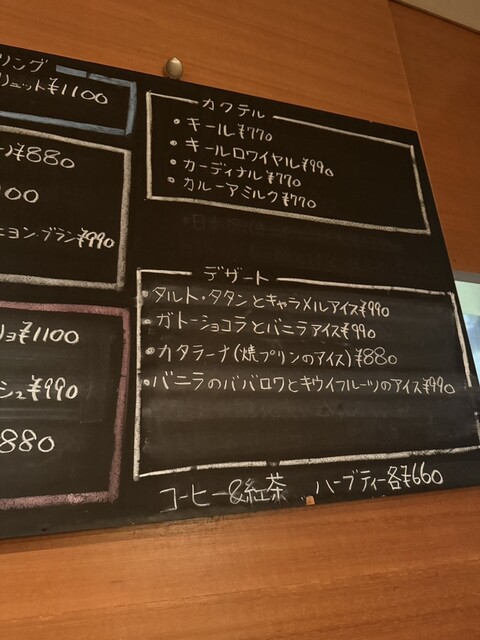 リング
リュット¥1100
¥880
00
ニヨン・ブラン¥990
¥1100
シュ¥990
880
カクテル
・キール¥770
・キールロワイヤル¥990
・カーディナル¥770
・カルーアミルク¥770
デザート
・タルト・タタンとキャラメルアイス¥990
・ガトーショコラとバニラアイス¥990
・カタラーナ(焼プリンのアイス)¥880
・バニラのババロワとキウイフルーツのアイス¥990
コーヒー&紅茶 ハーブティー各¥660